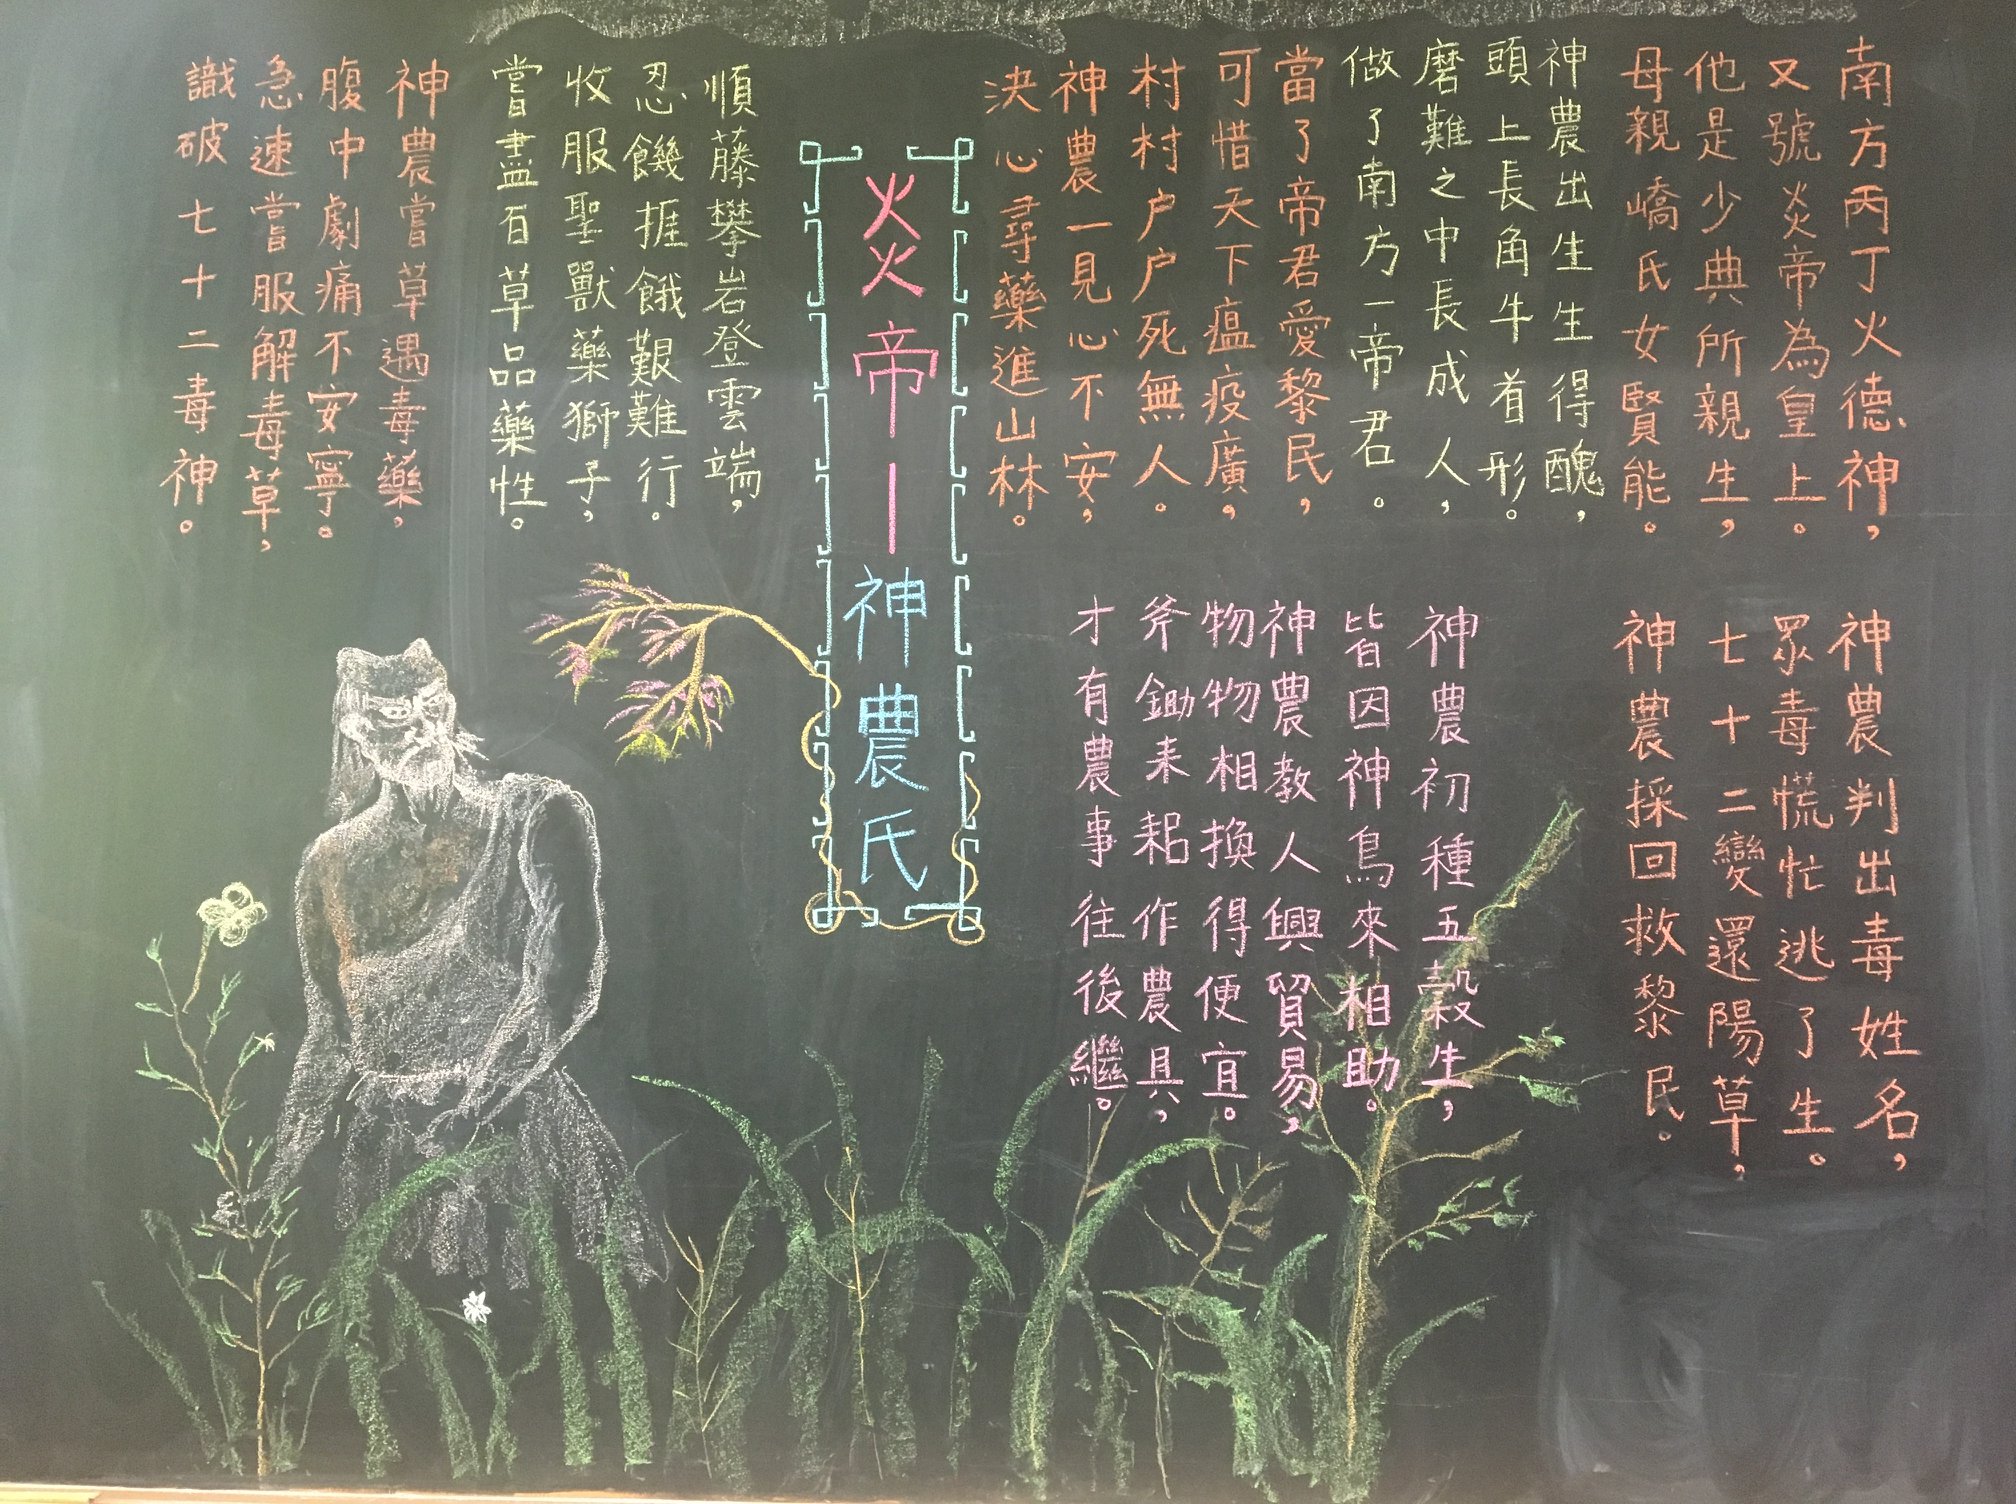 南方丙丁火德神，
又號炎帝為皇上。
他是少典所親生，
母親嶠氏女賢能。
神農出生生得醜，
頭上長角牛首形。
磨難之中長成人，
做了南方一帝君。
當了帝君愛黎民，
可惜天下瘟疫廣，
村村户户死無人。
神農一見心不安，
決心尋藥進山林。
炎帝—神農氏
順藤攀岩登雲端，
忍饑捱餓艱難行.
收服聖獸藥獅子，
嘗盡百草品藥性。
神農嘗草遇毒藥，
腹中劇痛不安寧。
急速嘗服解毒草，
識破七十二毒神。
神農判出毒姓名，
眾毒慌忙逃了生。
七十二變還陽草，
神農採回救黎民.
神農初種五穀生，
皆因神鳥來相助。
神農教人興貿易，
物物相換得便宜。
斧鋤耒耜作農具，
才有農事往後繼。